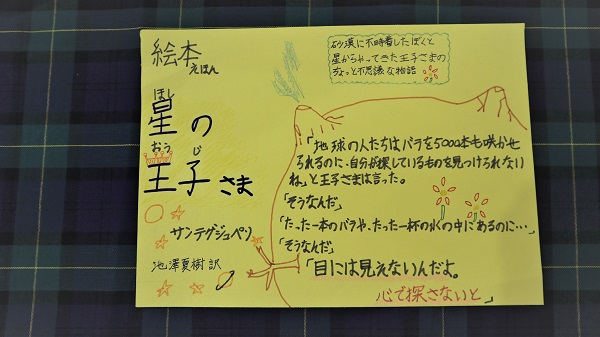 絵本
えほん
ほし
星の
おう じ
王子さま
サンテグジュペリ
池澤夏樹 訳
砂漠に不時着したぼくと
星からやってきた王子さまの
ちょっと不思議な物語
「地球の人たちはバラを5000本も咲かせ
られるのに、自分が探しているものを見つけられない
ね。」と王子さまは言った。
「そうなんだ」
「たった一本のバラや、たった一杯の水の中にあるのに…」
「そうなんだ」
「目には見えないんだよ。
心で探さないと」